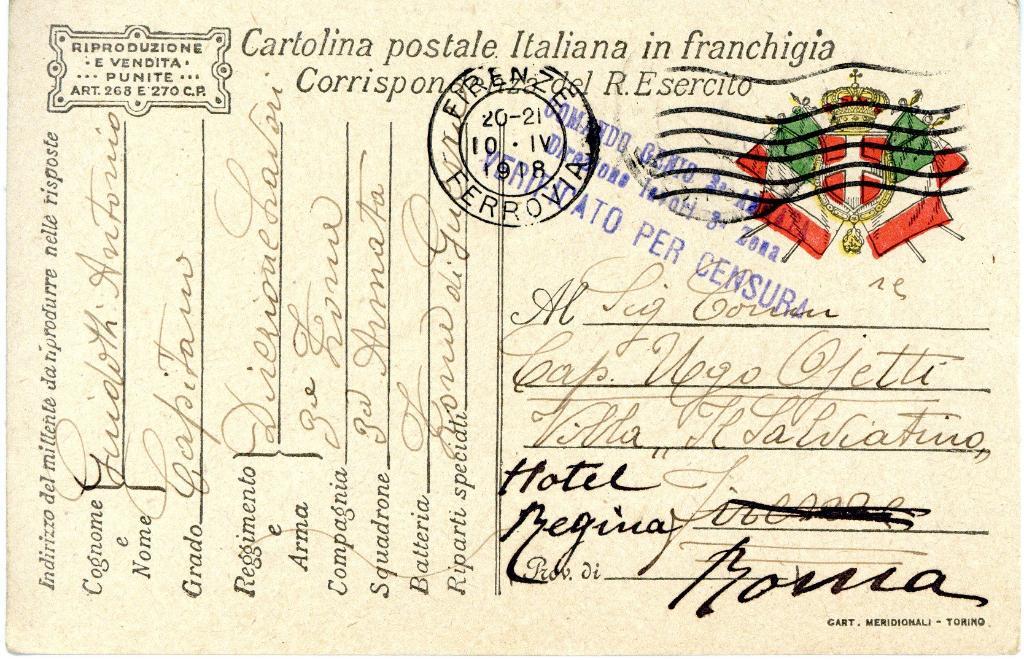 RIPRODUZIONE
E VENDITA
PUNITE
ART. 268 E 270 C.P.
Cartolina postale Italiana in franchigia
Corrispondenza del R. Esercito
FIRENZE
20-21
10 · IV
1918
FERROVIA
COMANDO GENIO 3a ARMATA
Direzione lavori 3a Zona
VERIFICATO PER CENSURA
Indirizzo del mittente da riprodurre nelle risposte
Cognome e Nome Guidotti Antonio
Grado Capitano
Reggimento e Arma Direzione Lavori
Compagnia 3a Zona
Squadrone 3a Armata
Batteria Zona di Guerra
Riparti speciali
Al Sig
Cap. Ugo Ojetti
Villa "Il Salviatino,,
Hotel Firenze
Regina
Prov. di Roma
CART. MERIDIONALI - TORINO